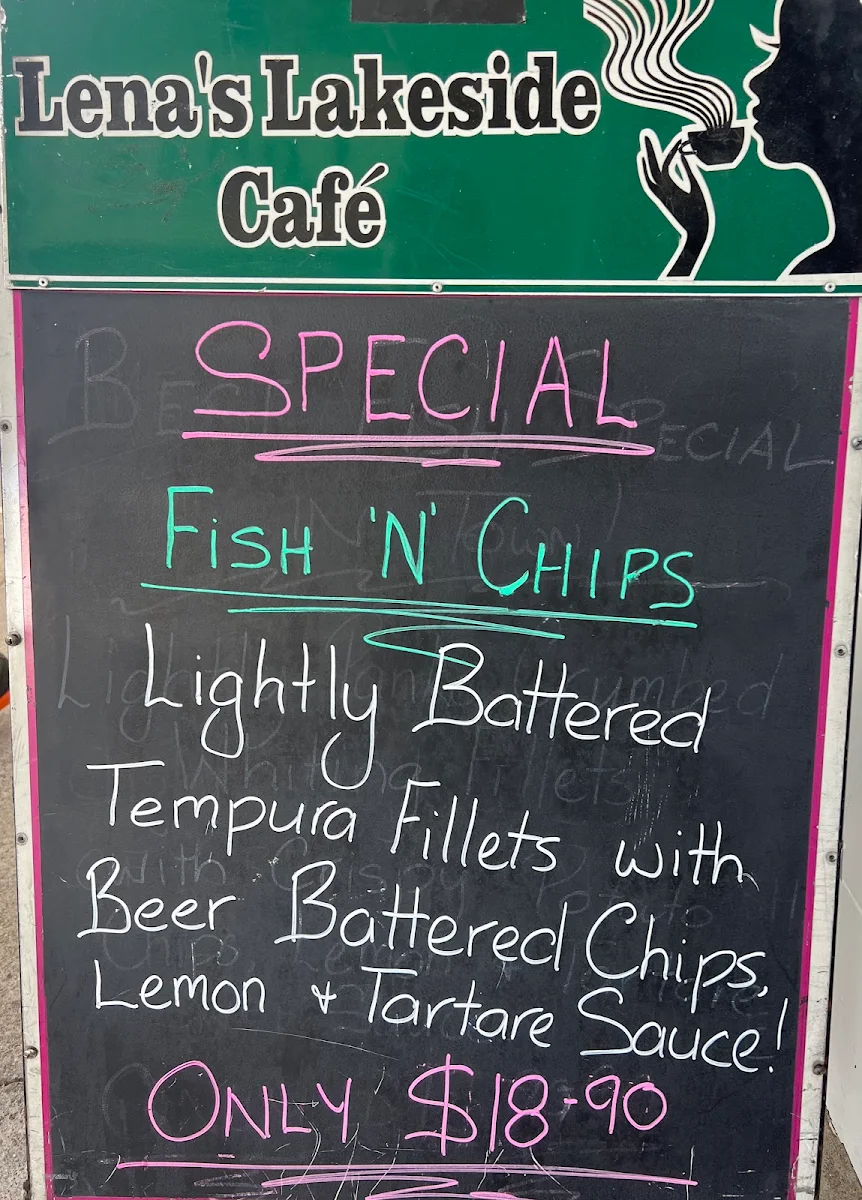 Lena's Lakeside
Café
SPECIAL
FISH 'N' CHIPS
Lightly Battered
Tempura Fillets with
Beer Battered Chips,
Lemon & Tartare Sauce!
ONLY $18-90